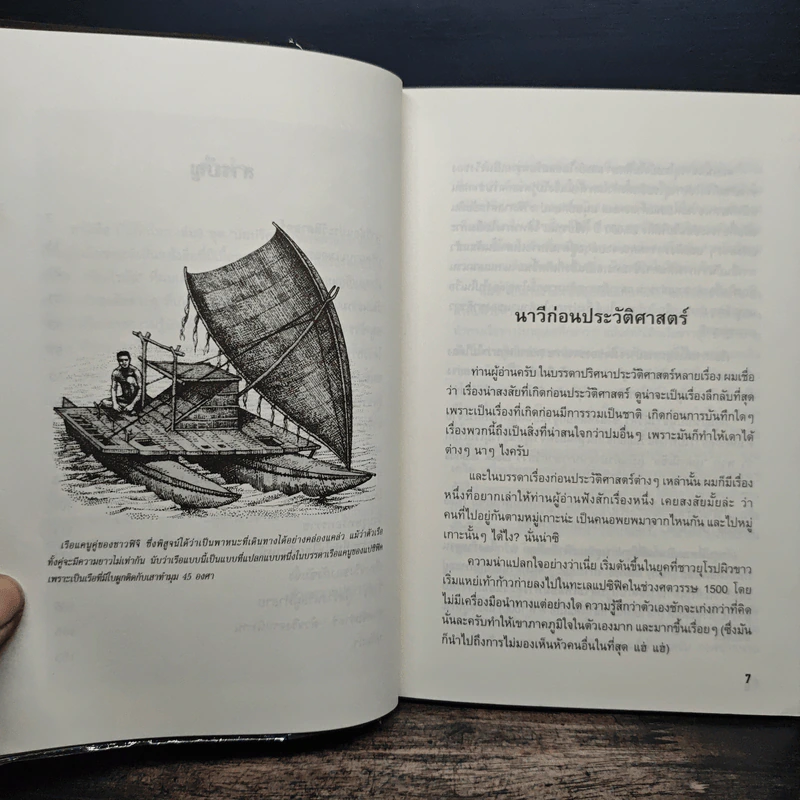 เรือแคนูคู่ของชาวฟิจิ ซึ่งพิสูจน์ได้ว่าเป็นพาหนะที่เดินทางได้อย่างคล่องแคล่ว แม้ว่าตัวเรือ
ทั้งคู่จะมีความยาวไม่เท่ากัน นับว่าเรือแบบนี้เป็นแบบที่แปลกแบบหนึ่งในบรรดาเรือแคนูของแปซิฟิค
เพราะเป็นเรือที่มีใบผูกติดกับเสาทำมุม 45 องศา
นาวีก่อนประวัติศาสตร์
ท่านผู้อ่านครับ ในบรรดาปริศนาประวัติศาสตร์หลายเรื่อง ผมเชื่อ
ว่า เรื่องน่าสงสัยที่เกิดก่อนประวัติศาสตร์ ดูน่าจะเป็นเรื่องลึกลับที่สุด
เพราะเป็นเรื่องที่เกิดก่อนมีการรวมเป็นชาติ เกิดก่อนการบันทึกใดๆ
เรื่องพวกนี้ถึงเป็นสิ่งที่น่าสนใจกว่าปมอื่นๆ เพราะมันก็ทำให้เดาได้
ต่างๆ นาๆ ไงครับ
และในบรรดาเรื่องก่อนประวัติศาสตร์ต่างๆ เหล่านั้น ผมก็มีเรื่อง
หนึ่งที่อยากเล่าให้ท่านผู้อ่านฟังสักเรื่องหนึ่ง เคยสงสัยมั้ยล่ะ ว่า
คนที่ไปอยู่กันตามหมู่เกาะน่ะ เป็นคนอพยพมาจากไหนกัน และไปหมู่
เกาะนั้นๆ ได้ไง? นั่นน่าซิ
ความน่าแปลกใจอย่างว่าเนี่ย เริ่มต้นขึ้นในยุคที่ชาวยุโรปผิวขาว
เริ่มแหย่เท้าก้าวก่ายลงไปในทะเลแปซิฟิคในช่วงศตวรรษ 1500 โดย
ไม่มีเครื่องมือนำทางแต่อย่างใด ความรู้สึกว่าตัวเองชักจะเก่งกว่าที่คิด
นั่นละครับทำให้เขาภาคภูมิใจในตัวเองมาก และมากขึ้นเรื่อยๆ (ซึ่งมัน
ก็นำไปถึงการไม่มองเห็นหัวคนอื่นในที่สุด แฮ่ แฮ่)
7